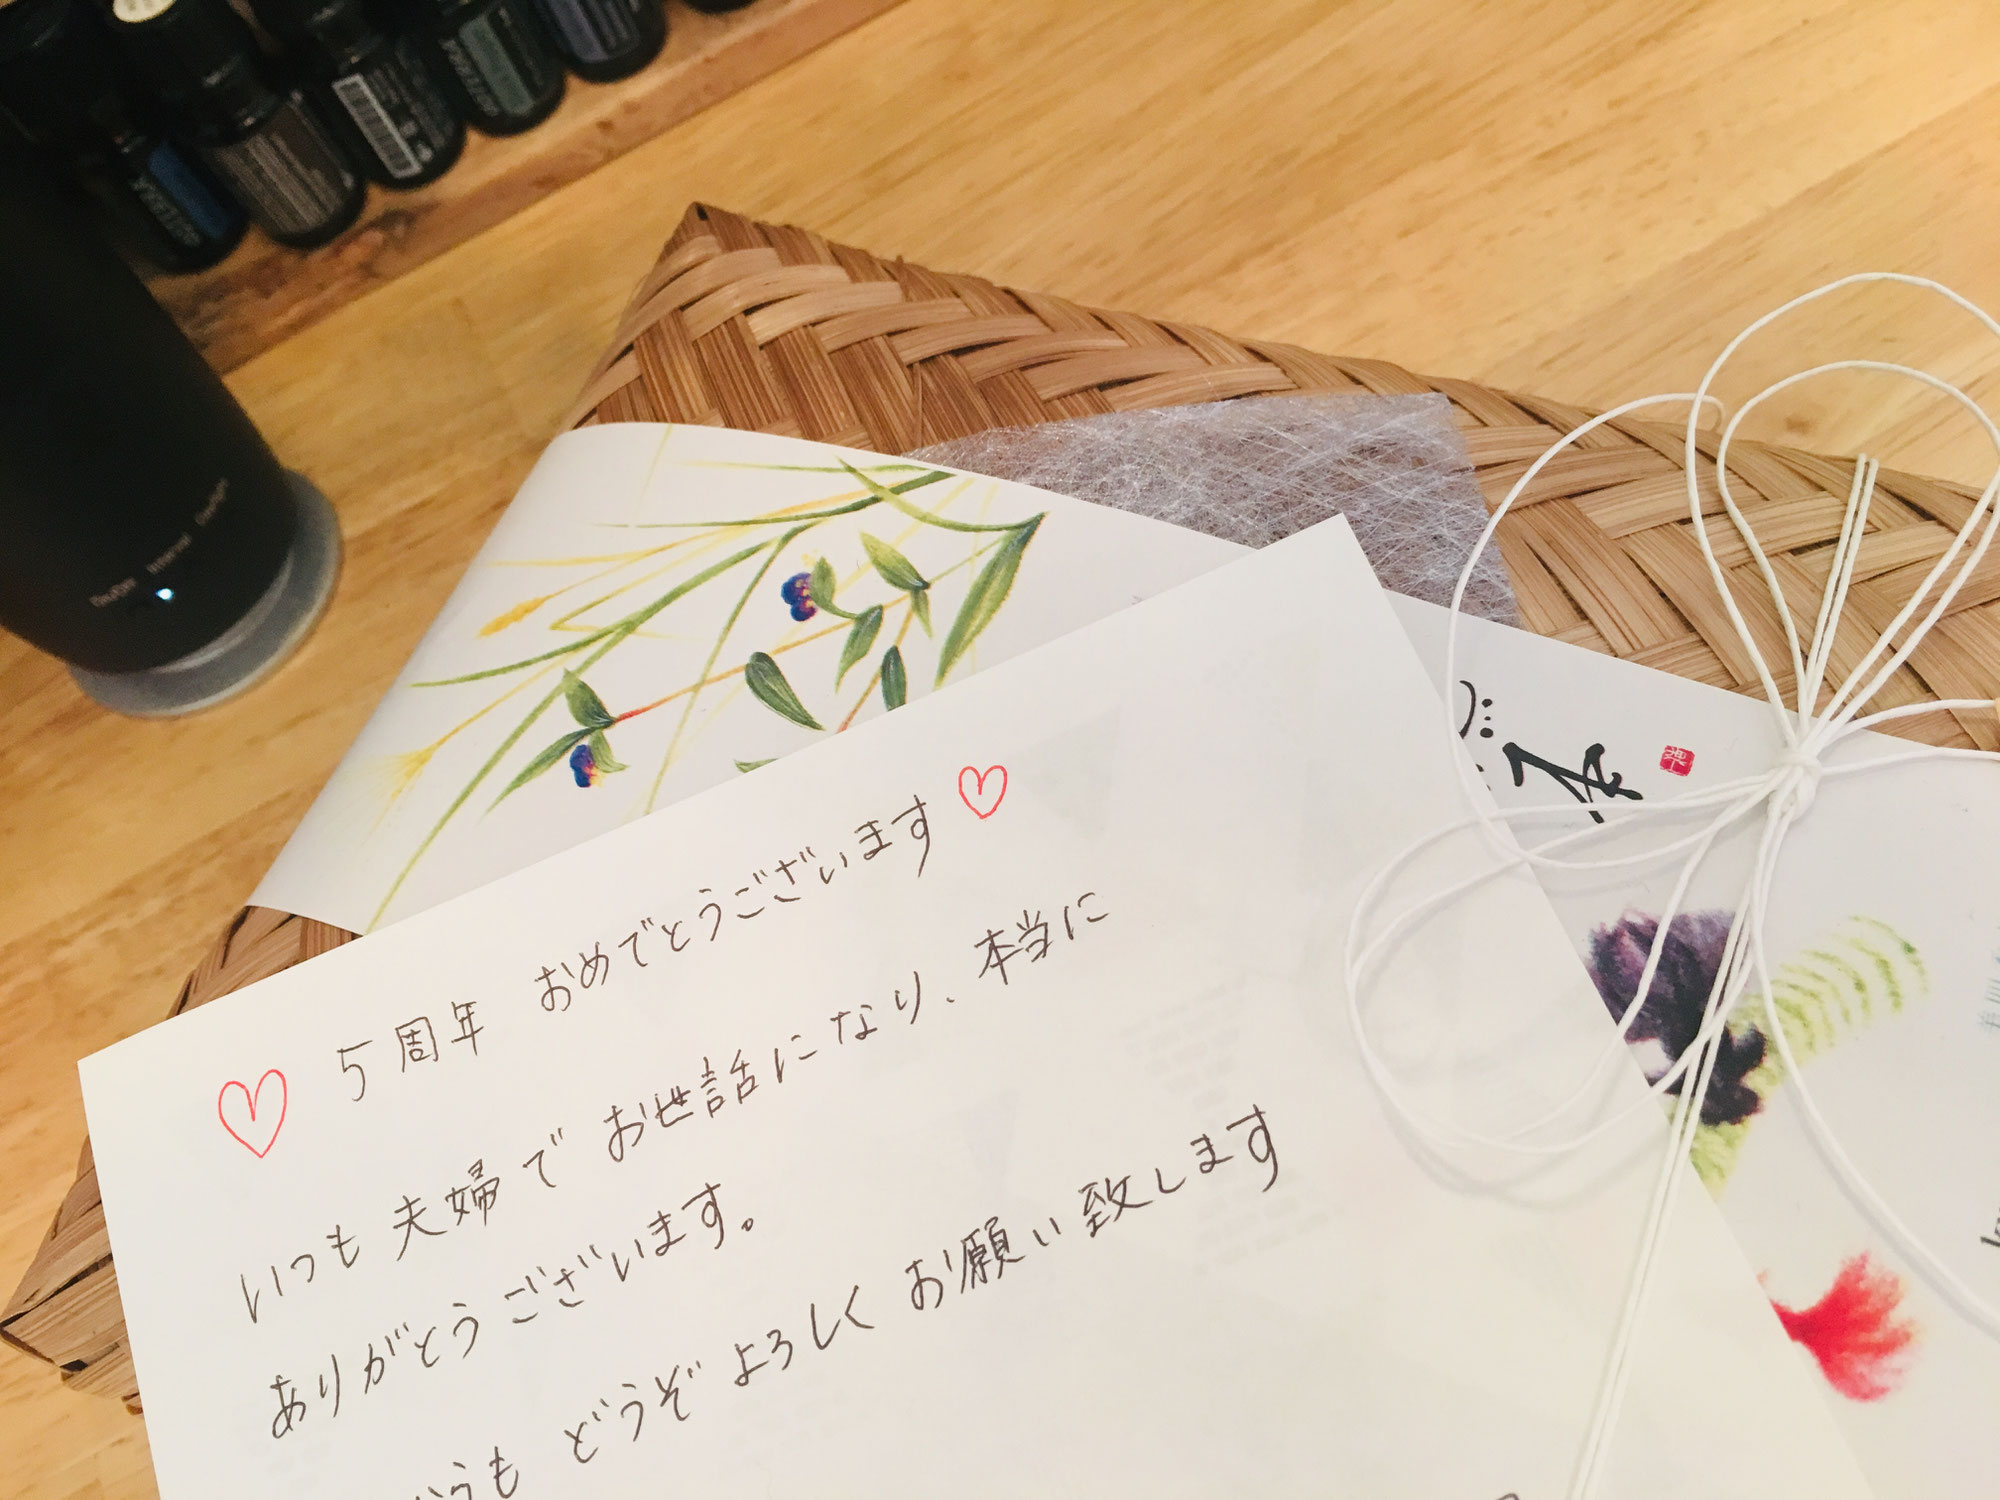 ♡ 5周年 おめでとうございます♡
いつも 夫婦で お世話になり、本当に
ありがとうございます。
どうぞ よろしく お願い致します
On/Off Interval
dōTERRA
dōTERRA
本